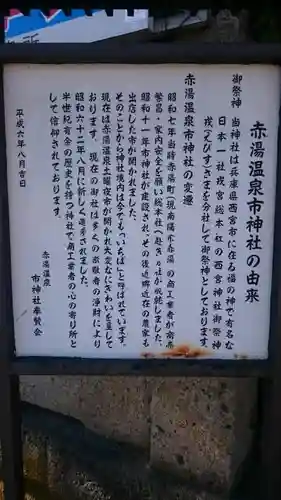 赤湯温泉市神社の由来
御祭神 当神社は兵庫県西宮市に在る福の神で有名な
日本一社戎宮総本社の西宮神社御祭神
戎(えびす)さまを分社して御祭神としております。
赤湯温泉市神社の変遷
昭和七年当時赤湯町(現南陽市赤湯)の商工業者が商売
繁昌・家内安全を願い総本社へ赴き
昭和十一年市神社が建設され、その後近郷近在の農家も
出店した市が開かれました。
そのことから神社境内は今でも「いちば」と呼ばれています。
現在は赤湯温泉土曜夜市が開かれ大変なにぎわいを呈して
おります。現在の御社は多くの崇敬者の浄財により
昭和六十二年八月に新しく
半世紀有余の歴史を持つ神社で商工業者の心の寄り所と
して信仰されております。
平成六年八月吉日
赤湯温泉
市神社奉賛会